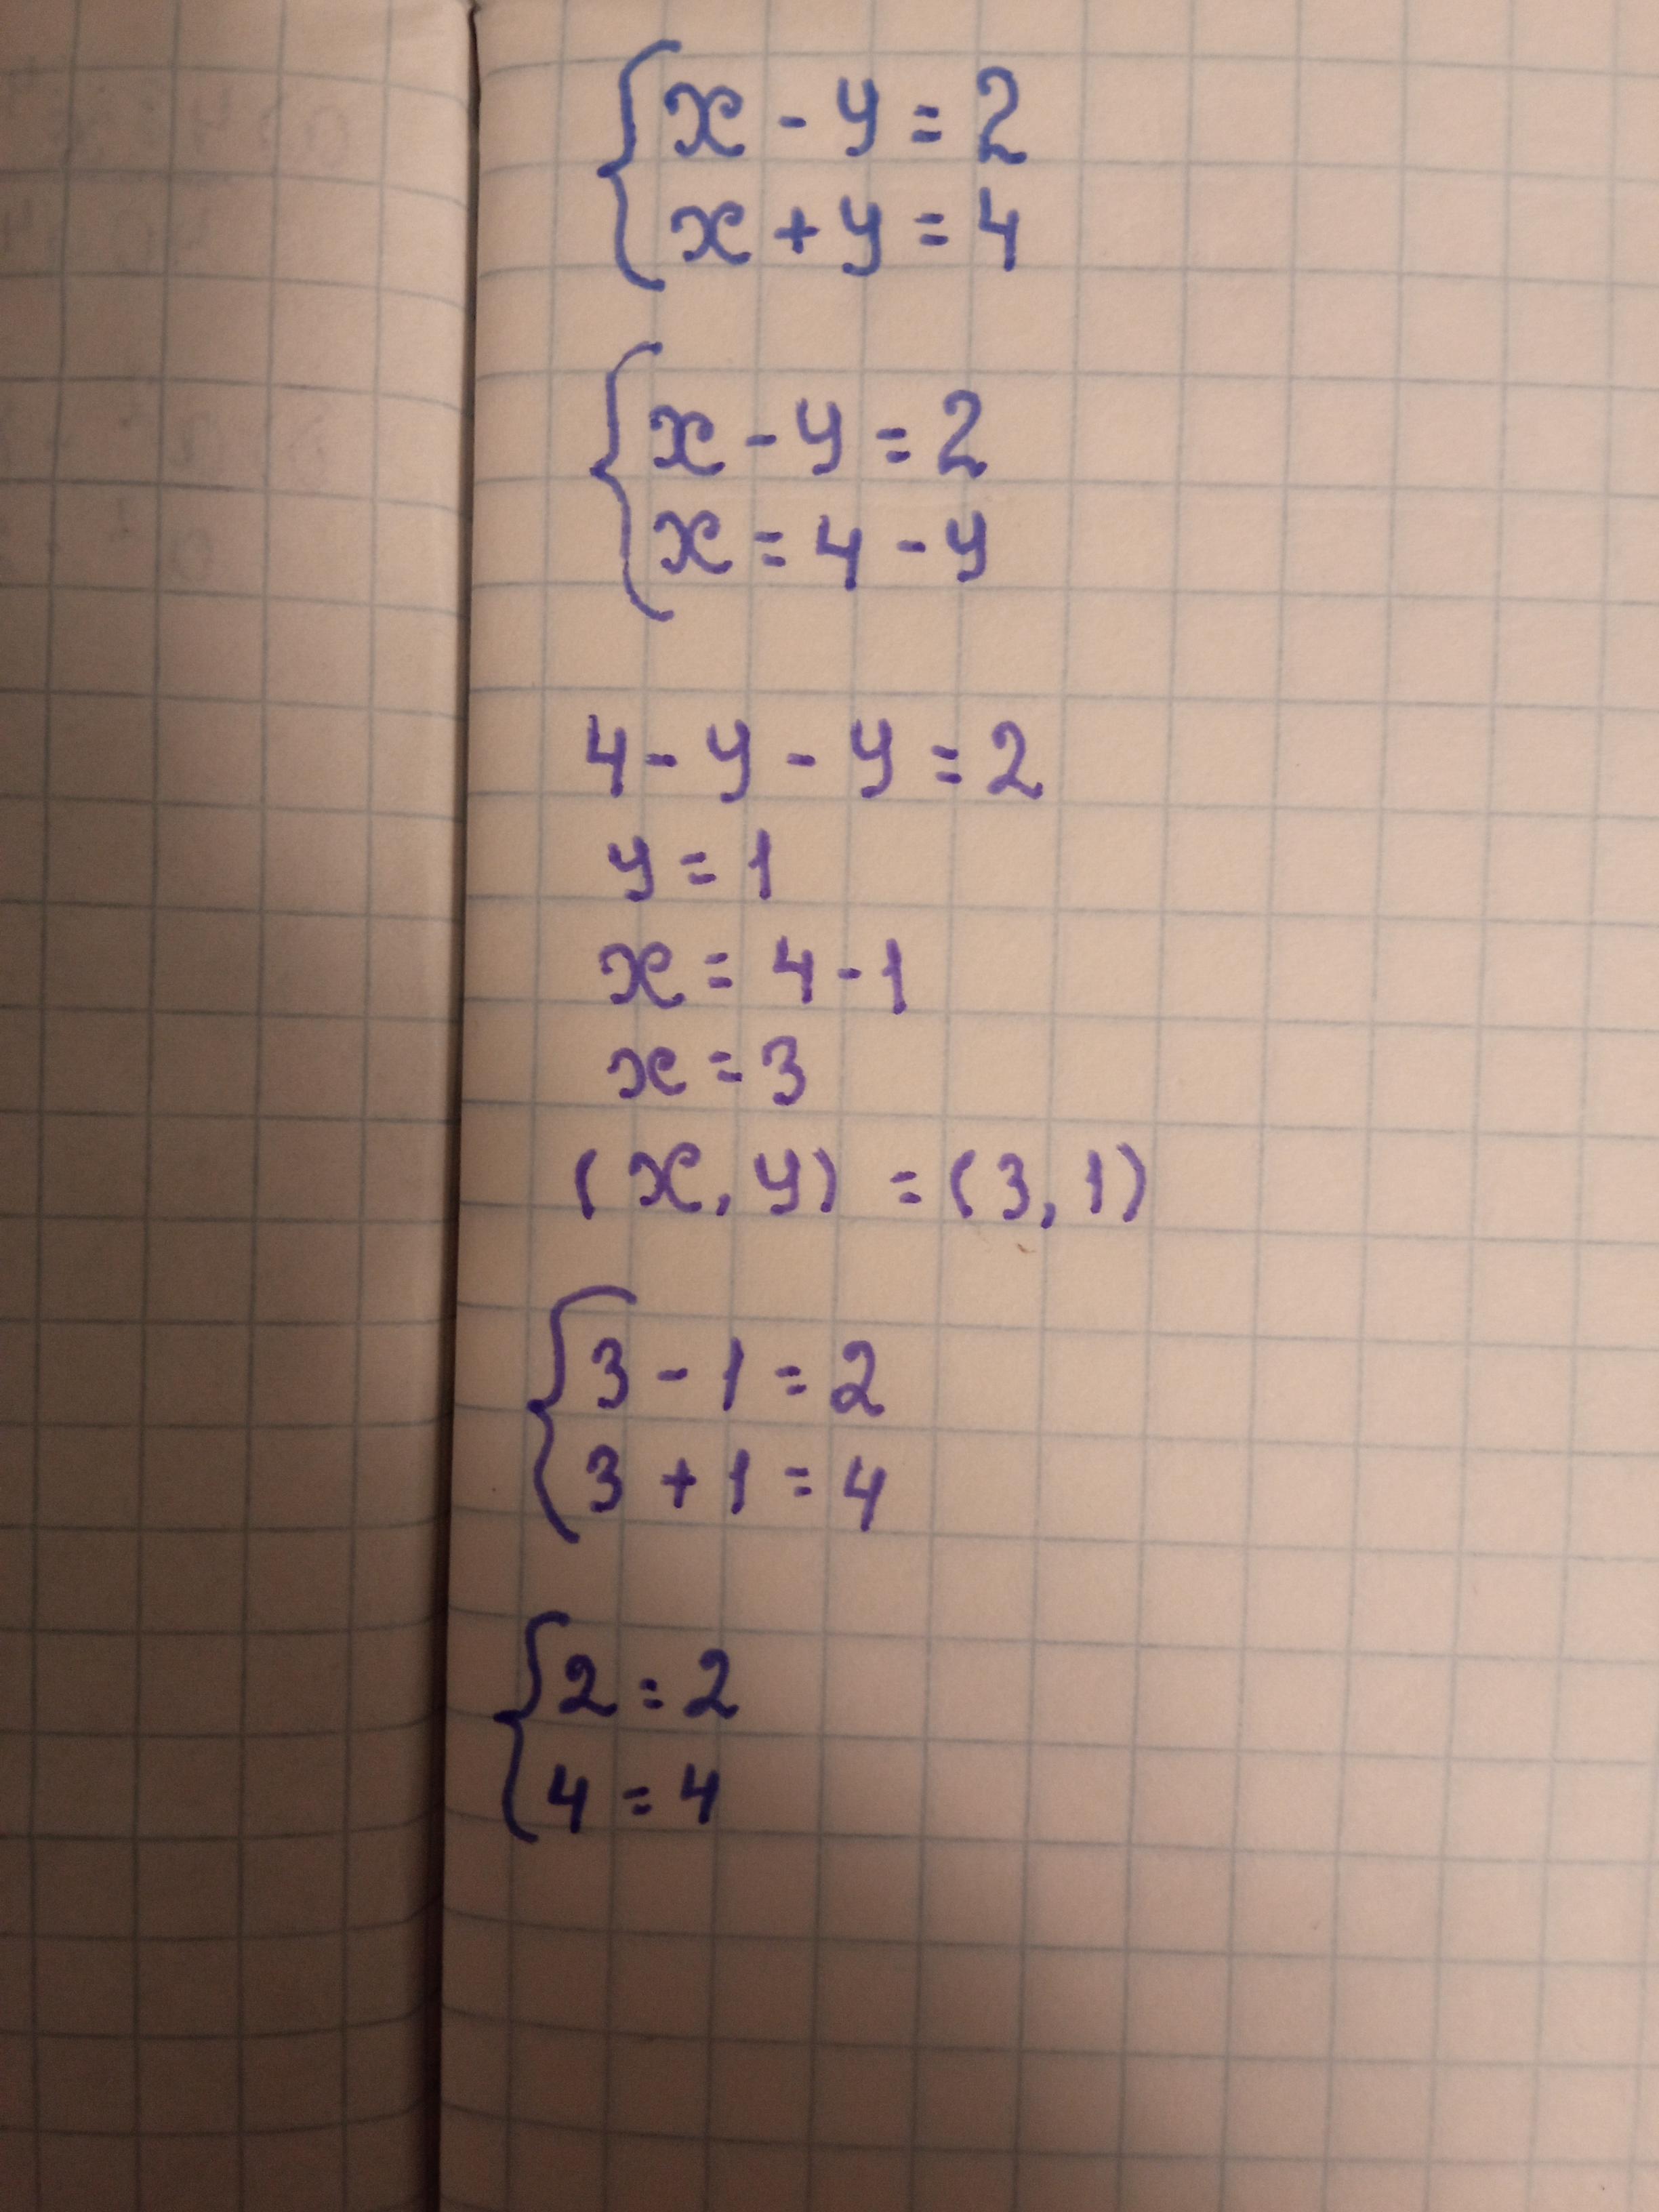 { x - y = 2
x + y = 4
{ x - y = 2
x = 4 - y
4 - y - y = 2
y = 1
x = 4 - 1
x = 3
(x, y) = (3, 1)
{ 3 - 1 = 2
3 + 1 = 4
{ 2 = 2
4 = 4